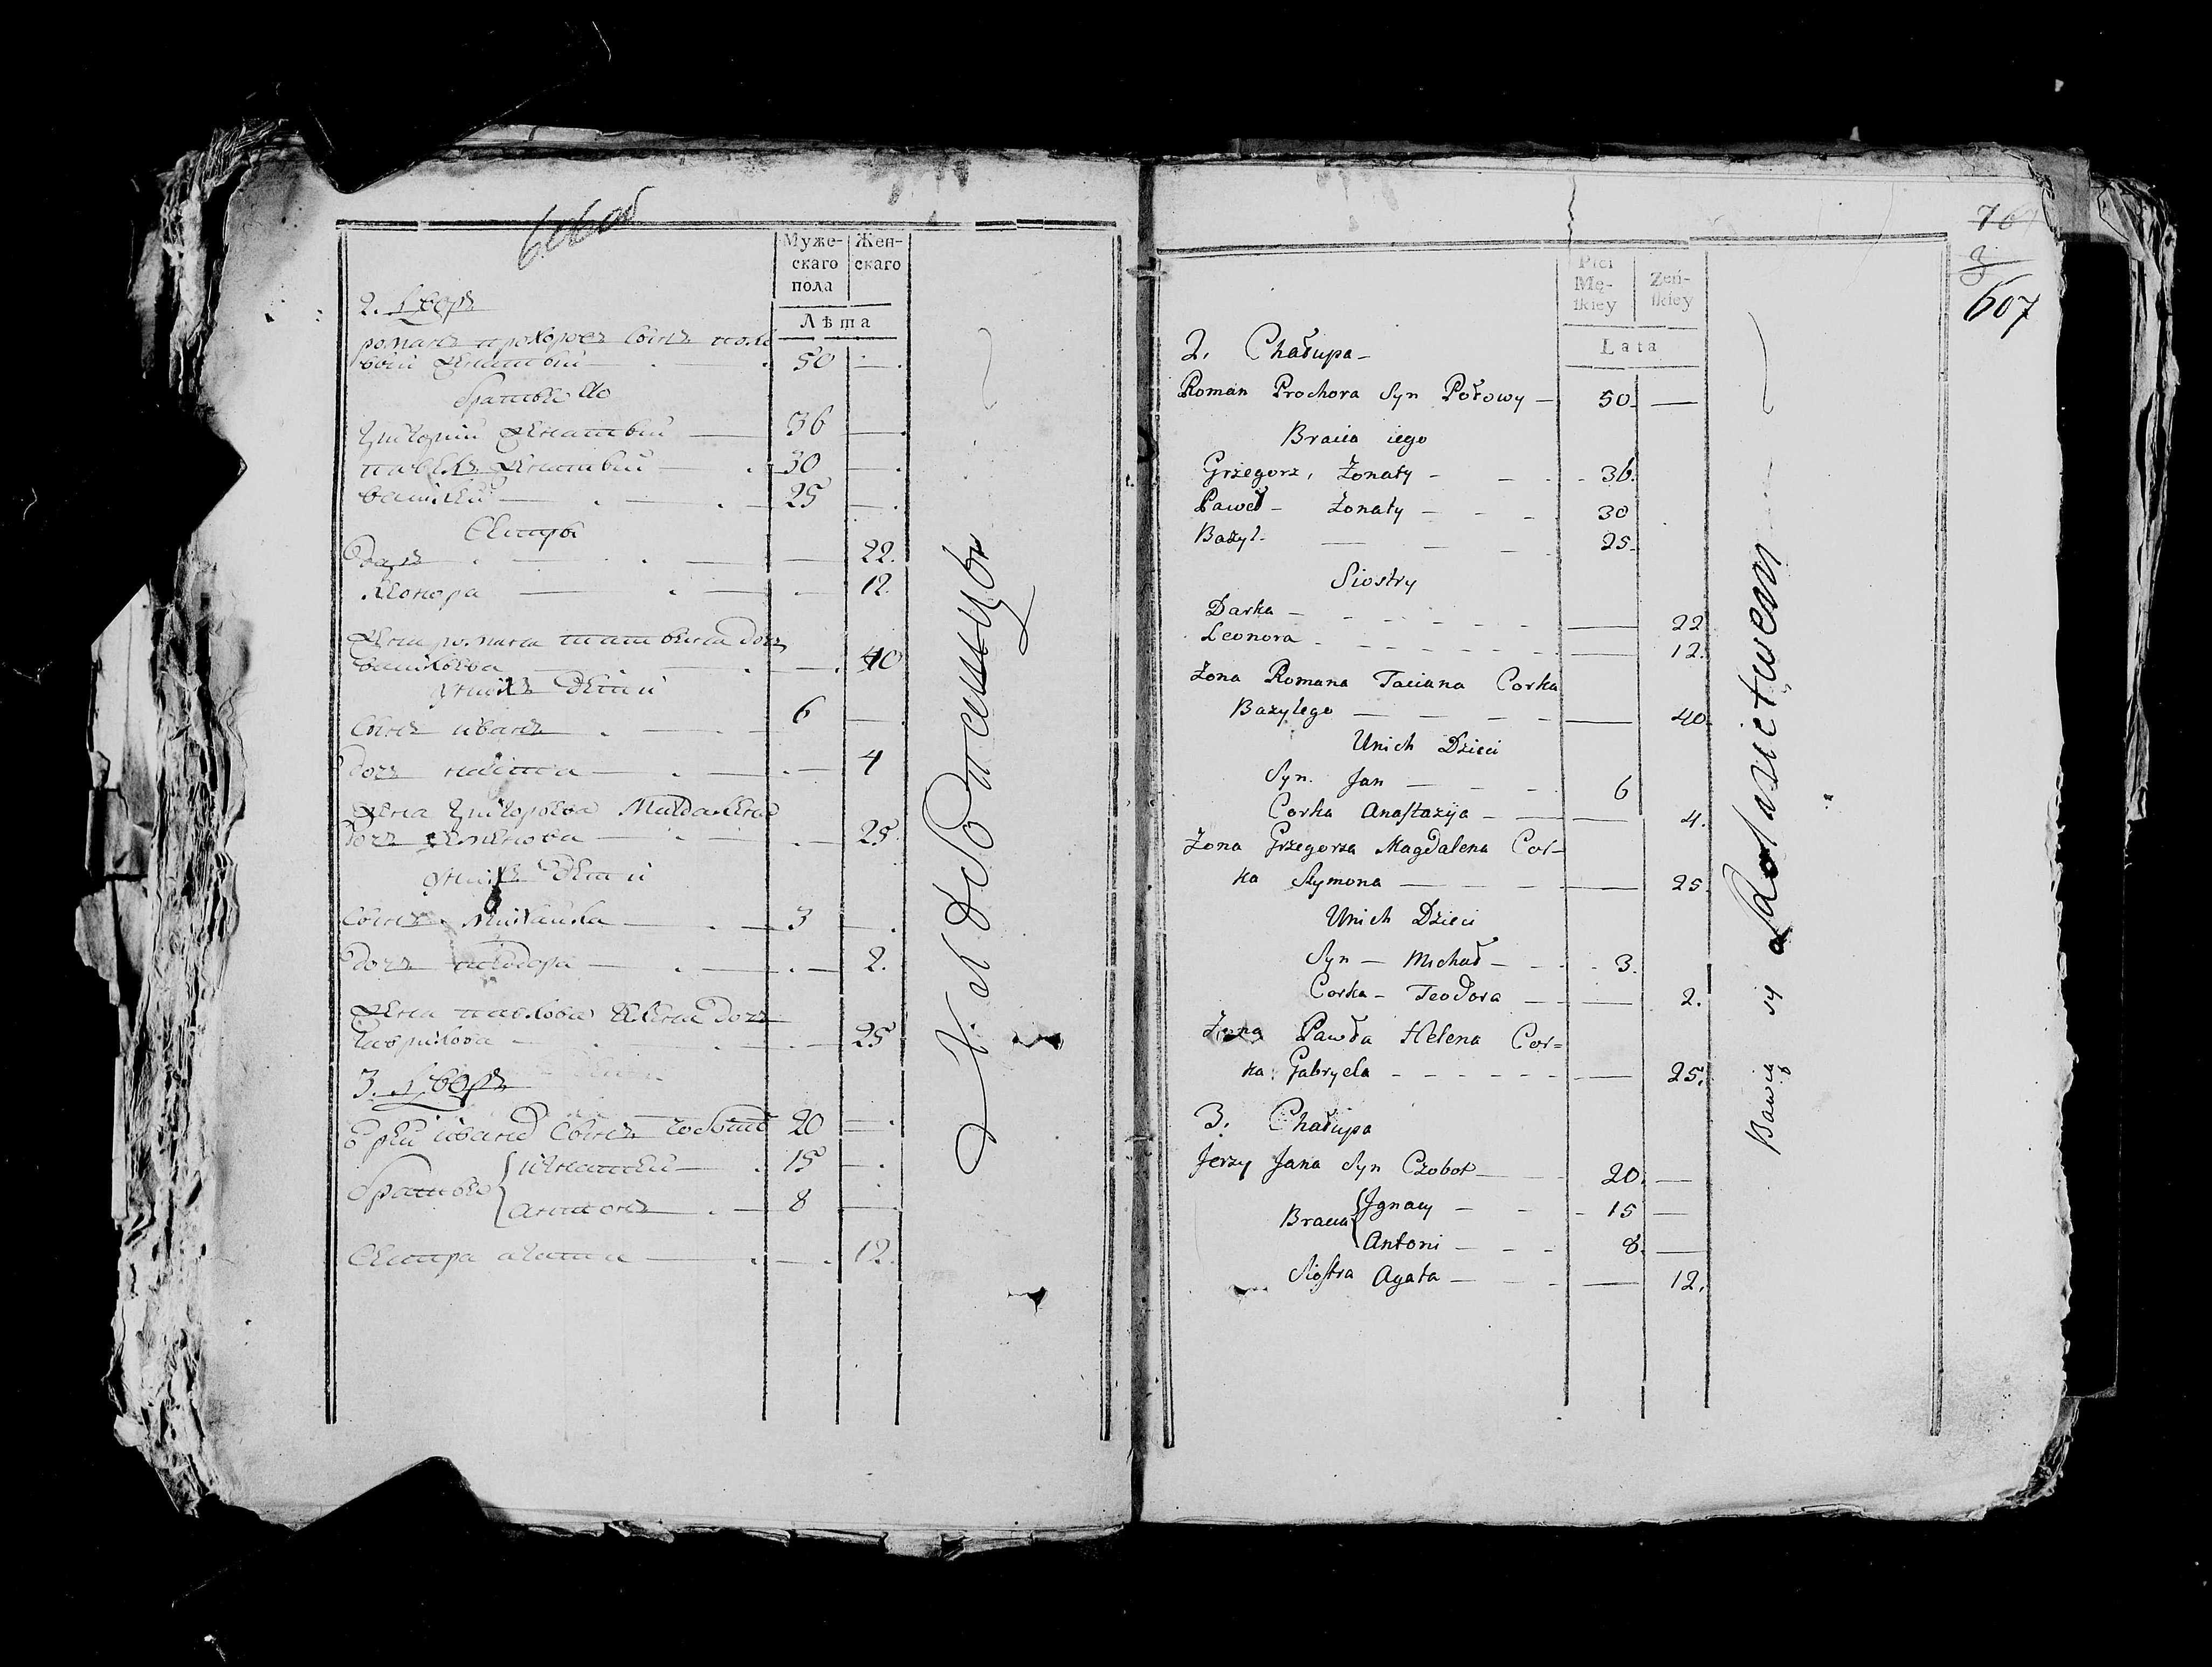 Муже-
скаго
пола
Жен-
скаго
Лѣта
2. Дворъ
романъ прохоровъ сынъ поло
вый женатый — 50 —
братья его
григорий женатый — 36 —
павелъ женатый — 30 —
василей — 25 —
сестры
22.
леонора — 12.
жена романа татьяна дочъ
василева — 40
у нихъ дети
сынъ иванъ — 6 —
дочъ настя — 4
жена григорьева Магдалена
дочъ семенова — 25.
у нихъ дети
сынъ Михайла — 3 —
дочъ теодора — 2.
жена павлова елена дочъ
гаврилова — 25
3. Дворъ
юрей ивана сынъ чоботъ 20 —
братья { игнатей — 15 —
антонъ — 8 —
сестра агата — 12.
хлебопашцы
76
3
607
Płci
Mę-
ſkiey
Żeń-
ſkiey
Lata
2. Chałupa —
Roman Prochora Syn Połowy — 50. —
Bracia iego
Grzegorz, Żonaty — 36.
Paweł — Żonaty — 30
Bazyl. — 25.
Siostry
Darka — 22
Leonora — 12.
Żona Romana Taciana Corka
Bazylego — 40.
Unich Dzieci
Syn. Jan — 6
Corka Anaſtazya — 4.
Żona Grzegorza Magdalena Cor-
ka Szymona — 25.
Unich Dzieci
Syn — Michał — 3.
Corka — Teodora — 2.
Żona Pawła Helena Cor=
ka Gabryela — 25.
3. Chałupa
Jerzy Jana Syn Czobot — 20. —
Bracia { Jgnacy — 15 —
Antoni — 8. —
Sioſtra Agata — 12.
Bawią się Rolnictwem